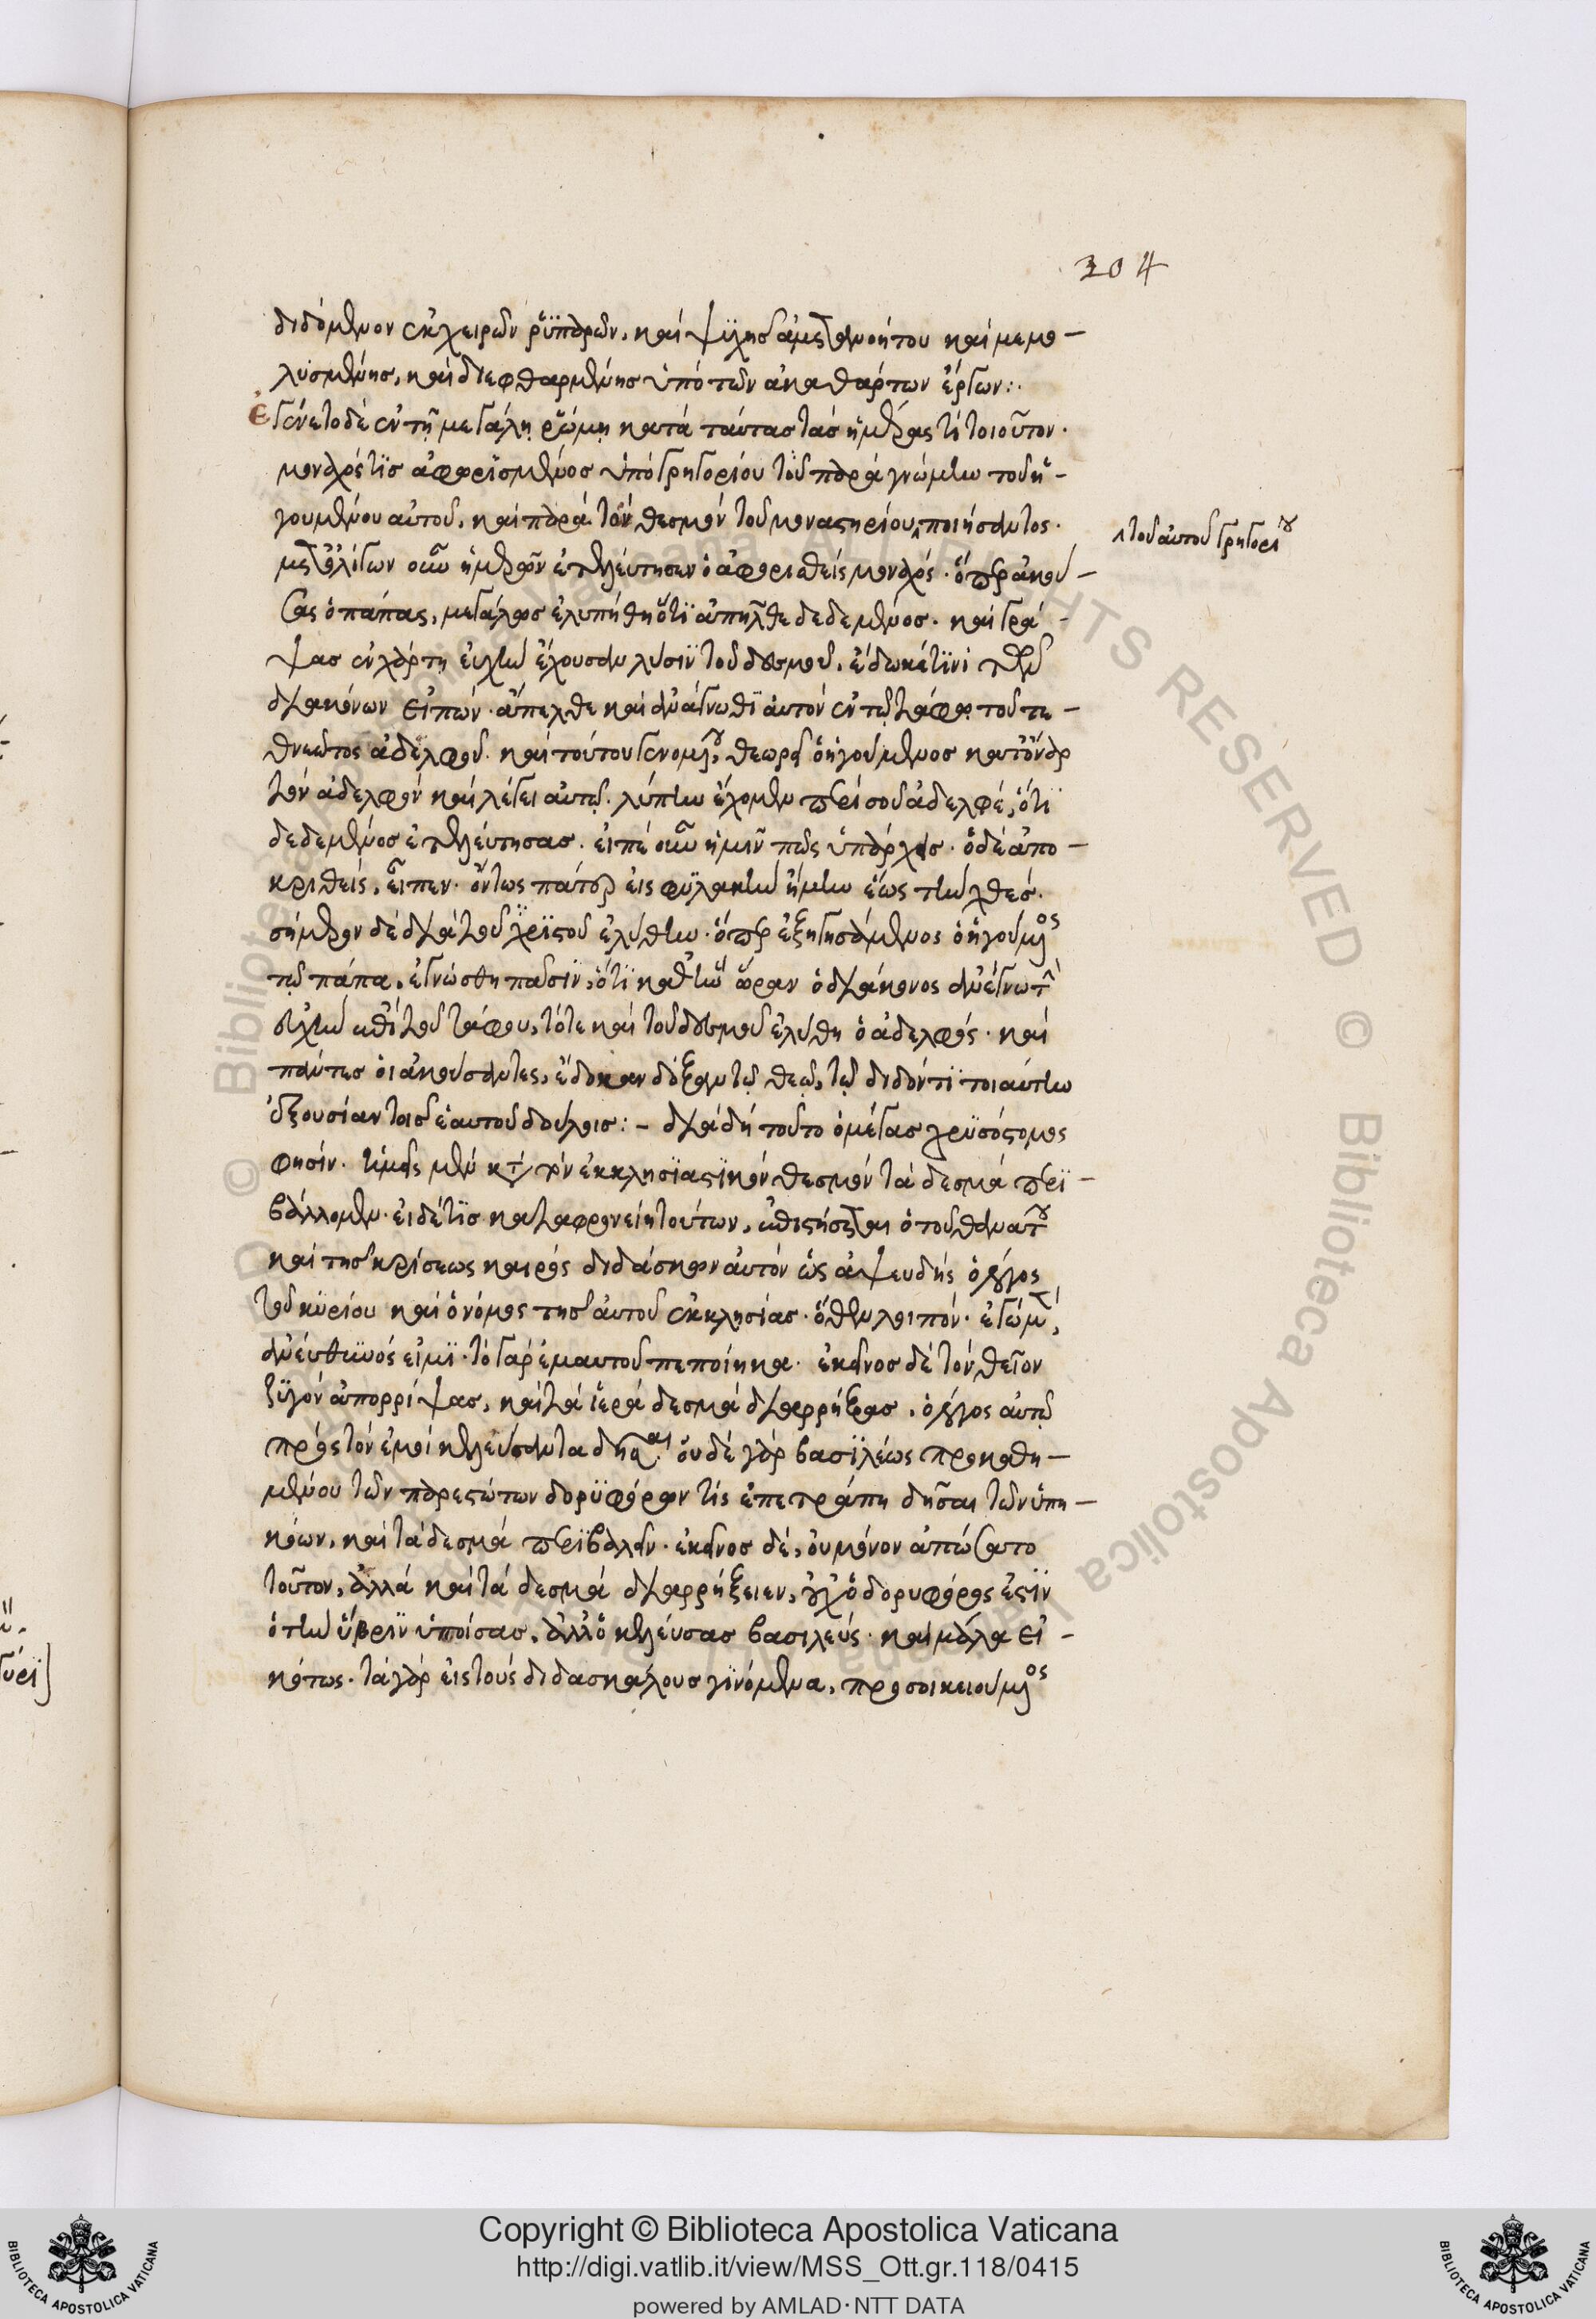 204
διδόμενον ἐκ χειρῶν ῥϋπαρῶν, καὶ ψϋχῆς ἀμετανοήτου καὶ μεμο-
λϋσμένης, καὶ διεφθαρμένης ὑπὸ τῶν ἀκαθάρτων ἔργων:.
ἐγένετο δὲ ἐν τῇ μεγάλῃ ῥώμῃ κατὰ ταύτας τὰς ἡμέρας τὶ τοιοῦτον.
μοναχός τϊς ἀφορϊσμένος ὑπὸ γρηγορίου τοῦ παρὰ γνώμην τοῦ ἡ-
γουμένου αὐτοῦ, καὶ παρὰ τὸν θεσμὸν τοῦ μοναστηρίου ποιήσαντος.
τοῦ αὐτοῦ γρηγορίου
μετ' ὀλίγων οὖν ἡμερῶν ἐτελεύτησεν ὁ ἀφορισθεὶς μοναχός. ὅπερ ἀκού-
σας ὁ πάπας, μεγάλως ἐλυπήθη ὅτϊ ἀπῆλθε δεδεμένος. καὶ γρά-
ψας ἐν χάρτῃ εὐχὴν ἔχουσαν λύσϊν τοῦ δεσμοῦ, ἔδωκέ τϊνι τῶν
διακόνων εἰπών. ἄπελθε καὶ ἀνάγνωθϊ αὐτὸν ἐν τῷ τάφῳ τοῦ τε-
θνεῶτος ἀδελφοῦ. καὶ τούτου γενομένου, θεωρεῖ ὁ ἡγούμενος κατ' ὄναρ
τὸν ἀδελφὸν καὶ λέγει αὐτῷ. λύπην ἔχομεν περὶ σοῦ ἀδελφέ, ὅτϊ
δεδεμένος ἐτελεύτησας. εἰπὲ οὖν ἡμῖν πῶς ὑπάρχεις. ὁ δὲ ἀπο-
κριθεὶς, εἶπεν. ὄντως πάτερ εἰς φϋλακὴν ἤμην ἕως τὴν χθές.
σήμερον δὲ διὰ τοῦ χρϊστοῦ ἐλύθην. ὅπερ ἐξηγησάμενος ὁ ἡγούμενος
τῷ πάπα, ἐγνώσθη πᾶσϊν, ὅτϊ καθ' ἣν ὥραν ὁ διάκονος ἀνέγνω τὴν
εὐχὴν ἐπὶ τοῦ τάφου, τότε καὶ τοῦ δεσμοῦ ἐλύθη ὁ ἀδελφός. καὶ
πάντες οἱ ἀκούσαντες, ἔδωκαν δόξαν τῷ θεῷ, τῷ διδόντϊ τοιαύτην
ἐξουσίαν τοῖς ἑαυτοῦ δούλοις:- διὰ δὴ τοῦτο ὁ μέγας χρϋσόστομος
φησίν. ἡμεῖς μὲν κατὰ τὸν ἐκκλησϊαστϊκὸν θεσμὸν τὰ δεσμὰ περϊ-
βάλλομεν. εἰ δέ τϊς καταφρονείη τούτων, ἐπιστήσεται ὁ τοῦ θανάτου
καὶ τῆς κρίσεως καιρὸς διδάσκων αὐτὸν ὡς ἀψευδὴς ὁ λόγος
τοῦ κϋρίου καὶ ὁ νόμος τῆς αὐτοῦ ἐκκλησίας. ὅθεν λοιπόν. ἐγὼ μὲν,
ἀνεύθϋνός εἰμϊ. τὸ γὰρ ἐμαυτοῦ πεποίηκα. ἐκεῖνος δὲ τὸν θεῖον
ζϋγὸν ἀπορρίψας, καὶ τὰ ἱερὰ δεσμὰ διαρρήξας, ὁ λόγος αὐτῷ
πρὸς τὸν ἐμοὶ κελεύσαντα δῆσαι. οὐδὲ γὰρ βασϊλέως προκαθη-
μένου τῶν παρεστώτων δορϋφόρων τίς ἐπετράπη δῆσαι τῶν ὑπη-
κόων, καὶ τὰ δεσμὰ περϊβαλεῖν. ἐκεῖνος δὲ, οὐ μόνον ἀπώσατο
τοῦτον, ἀλλὰ καὶ τὰ δεσμὰ διαρρήξειεν, οὐχ' ὁ δορυφόρος ἐστϊν
ὁ τὴν ὕβρϊν ὑποίσας, ἀλλ' ὁ κελεύσας βασιλεύς. καὶ μάλα εἰ-
κότως. τὰ γὰρ εἰς τοὺς διδασκάλους γϊνόμενα, προσοικειούμενος
Copyright © Biblioteca Apostolica Vaticana
http://digi.vatlib.it/view/MSS_Ott.gr.118/0415
powered by AMLAD·NTT DATA